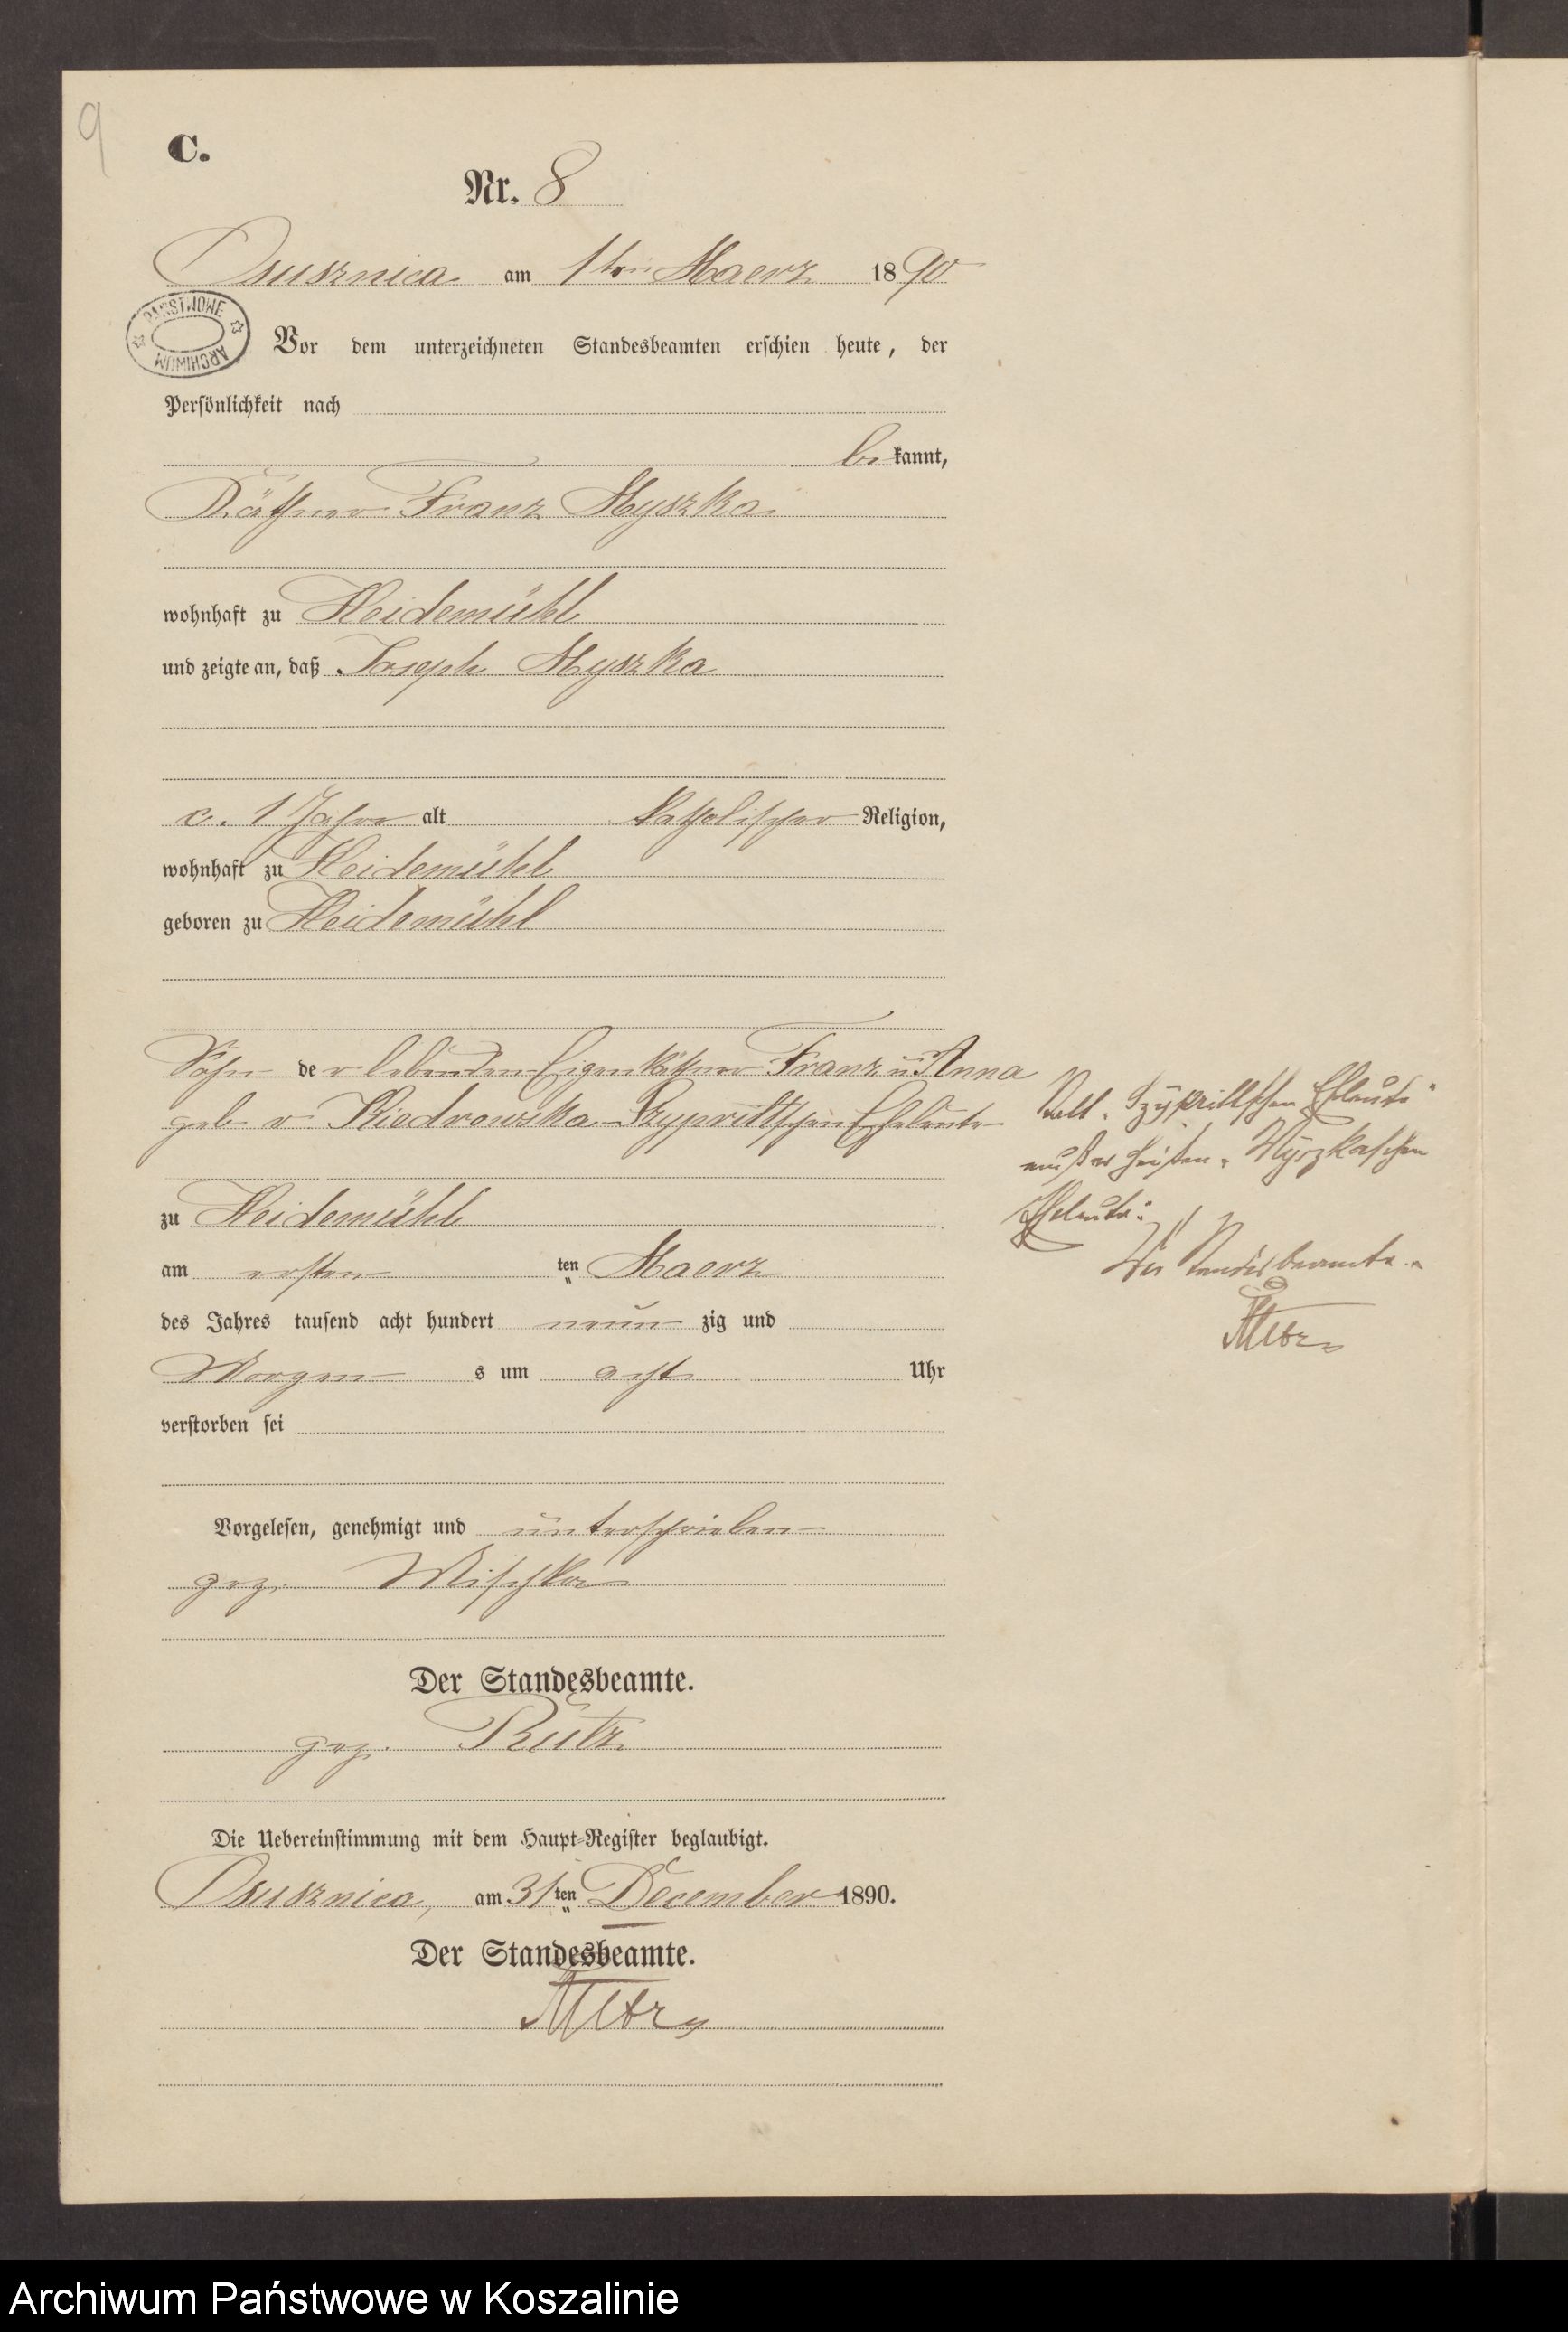 9
C.
Nr. 8
Osusznica am 1ten Maerz 1890
PAŃSTWOWE ARCHIWUM
Vor dem unterzeichneten Standesbeamten erschien heute, der
Persönlichkeit nach
bekannt,
Käthner Franz Myszka
wohnhaft zu Heidemühl
und zeigte an, daß Joseph Myszka
c. 1 Jahr alt katholischer Religion,
wohnhaft zu Heidemühl
geboren zu Heidemühl
Sohn der lebenden Eigenkäthner Franz u Anna
geb. v Kiedrowska Szyprittschen Eheleute
zu Heidemühl
am ersten ten Maerz
des Jahres tausend acht hundert neun zig und
Morgens um acht Uhr
verstorben sei
Vorgelesen, genehmigt und unterschrieben
gez. Mischka
Der Standesbeamte.
gez. Rutz
Die Uebereinstimmung mit dem Haupt-Register beglaubigt.
Osusznica, am 31ten December 1890.
Der Standesbeamte.
Rutz
Statt Szyprittschen Eheleute
muß es heißen Myszkaschen
Eheleute
Der Standesbeamte
Rutz
Archiwum Państwowe w Koszalinie